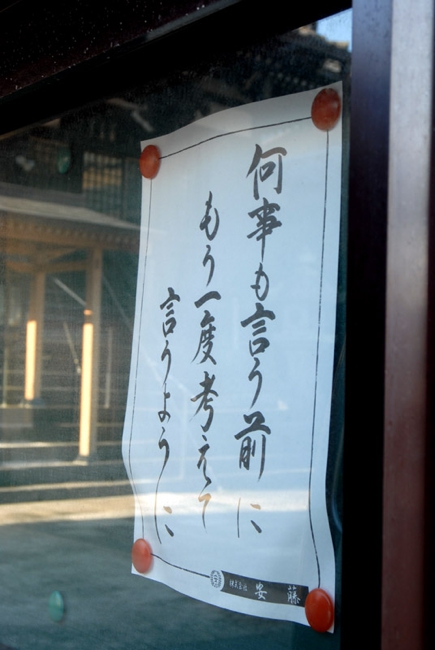 何事も言う前に
もう一度考えて
言うように
株式会社 安藤